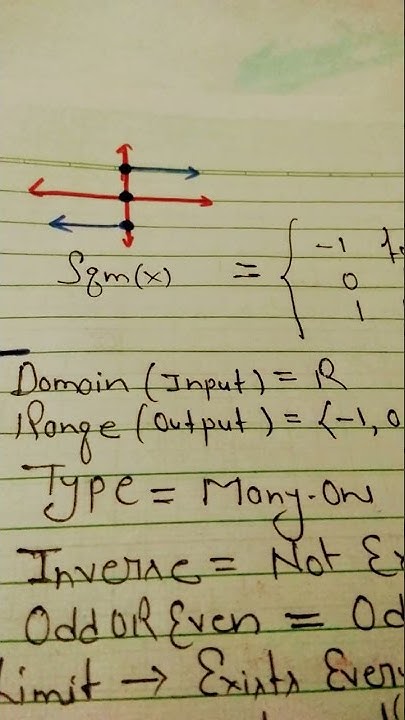 Sgm(x) = { -1
0
1
Domain (Input) = R
Range (Output) = {-1, 0
Type = Many-On
Inverse = Not Ex
Odd OR Even = Od
Limit → Exists Every